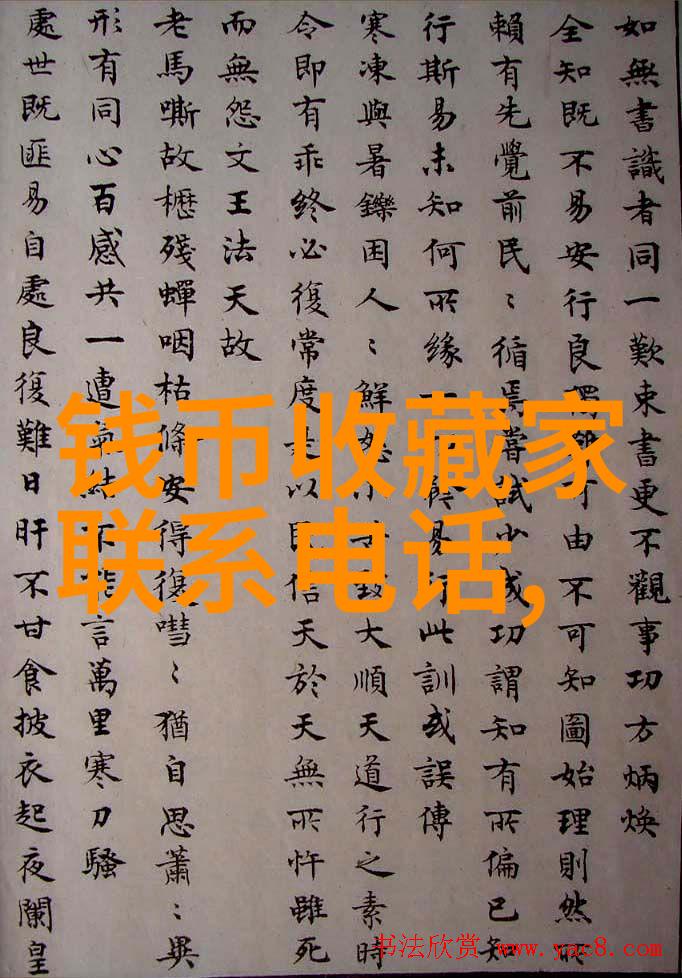 如無書識者同一歎束書更不觀事功方炳煥
全知既不易安行良可由不可知圖始理則然所
賴有先覺前民〻循焉嘗試少成功謂知有所偏已知
行斯易未知何所緣易行此訓或誤傳
寒凍與暑鑠困人〻鮮怨致大順天道行之素時
令即有乖終必復常度是以民信天於天無所忤雖死
而無怨文王法天故
老馬嘶故櫪殘蟬咽枯條安得復嘒〻猶自思蕭〻異
形有同心百感共一遭氣結不能言萬里寒刀騷
處世既匪易自處良復難日肝不甘食披衣起夜闌皇
钱币收藏家
联系电话,
书法欣赏 www.yac8.com